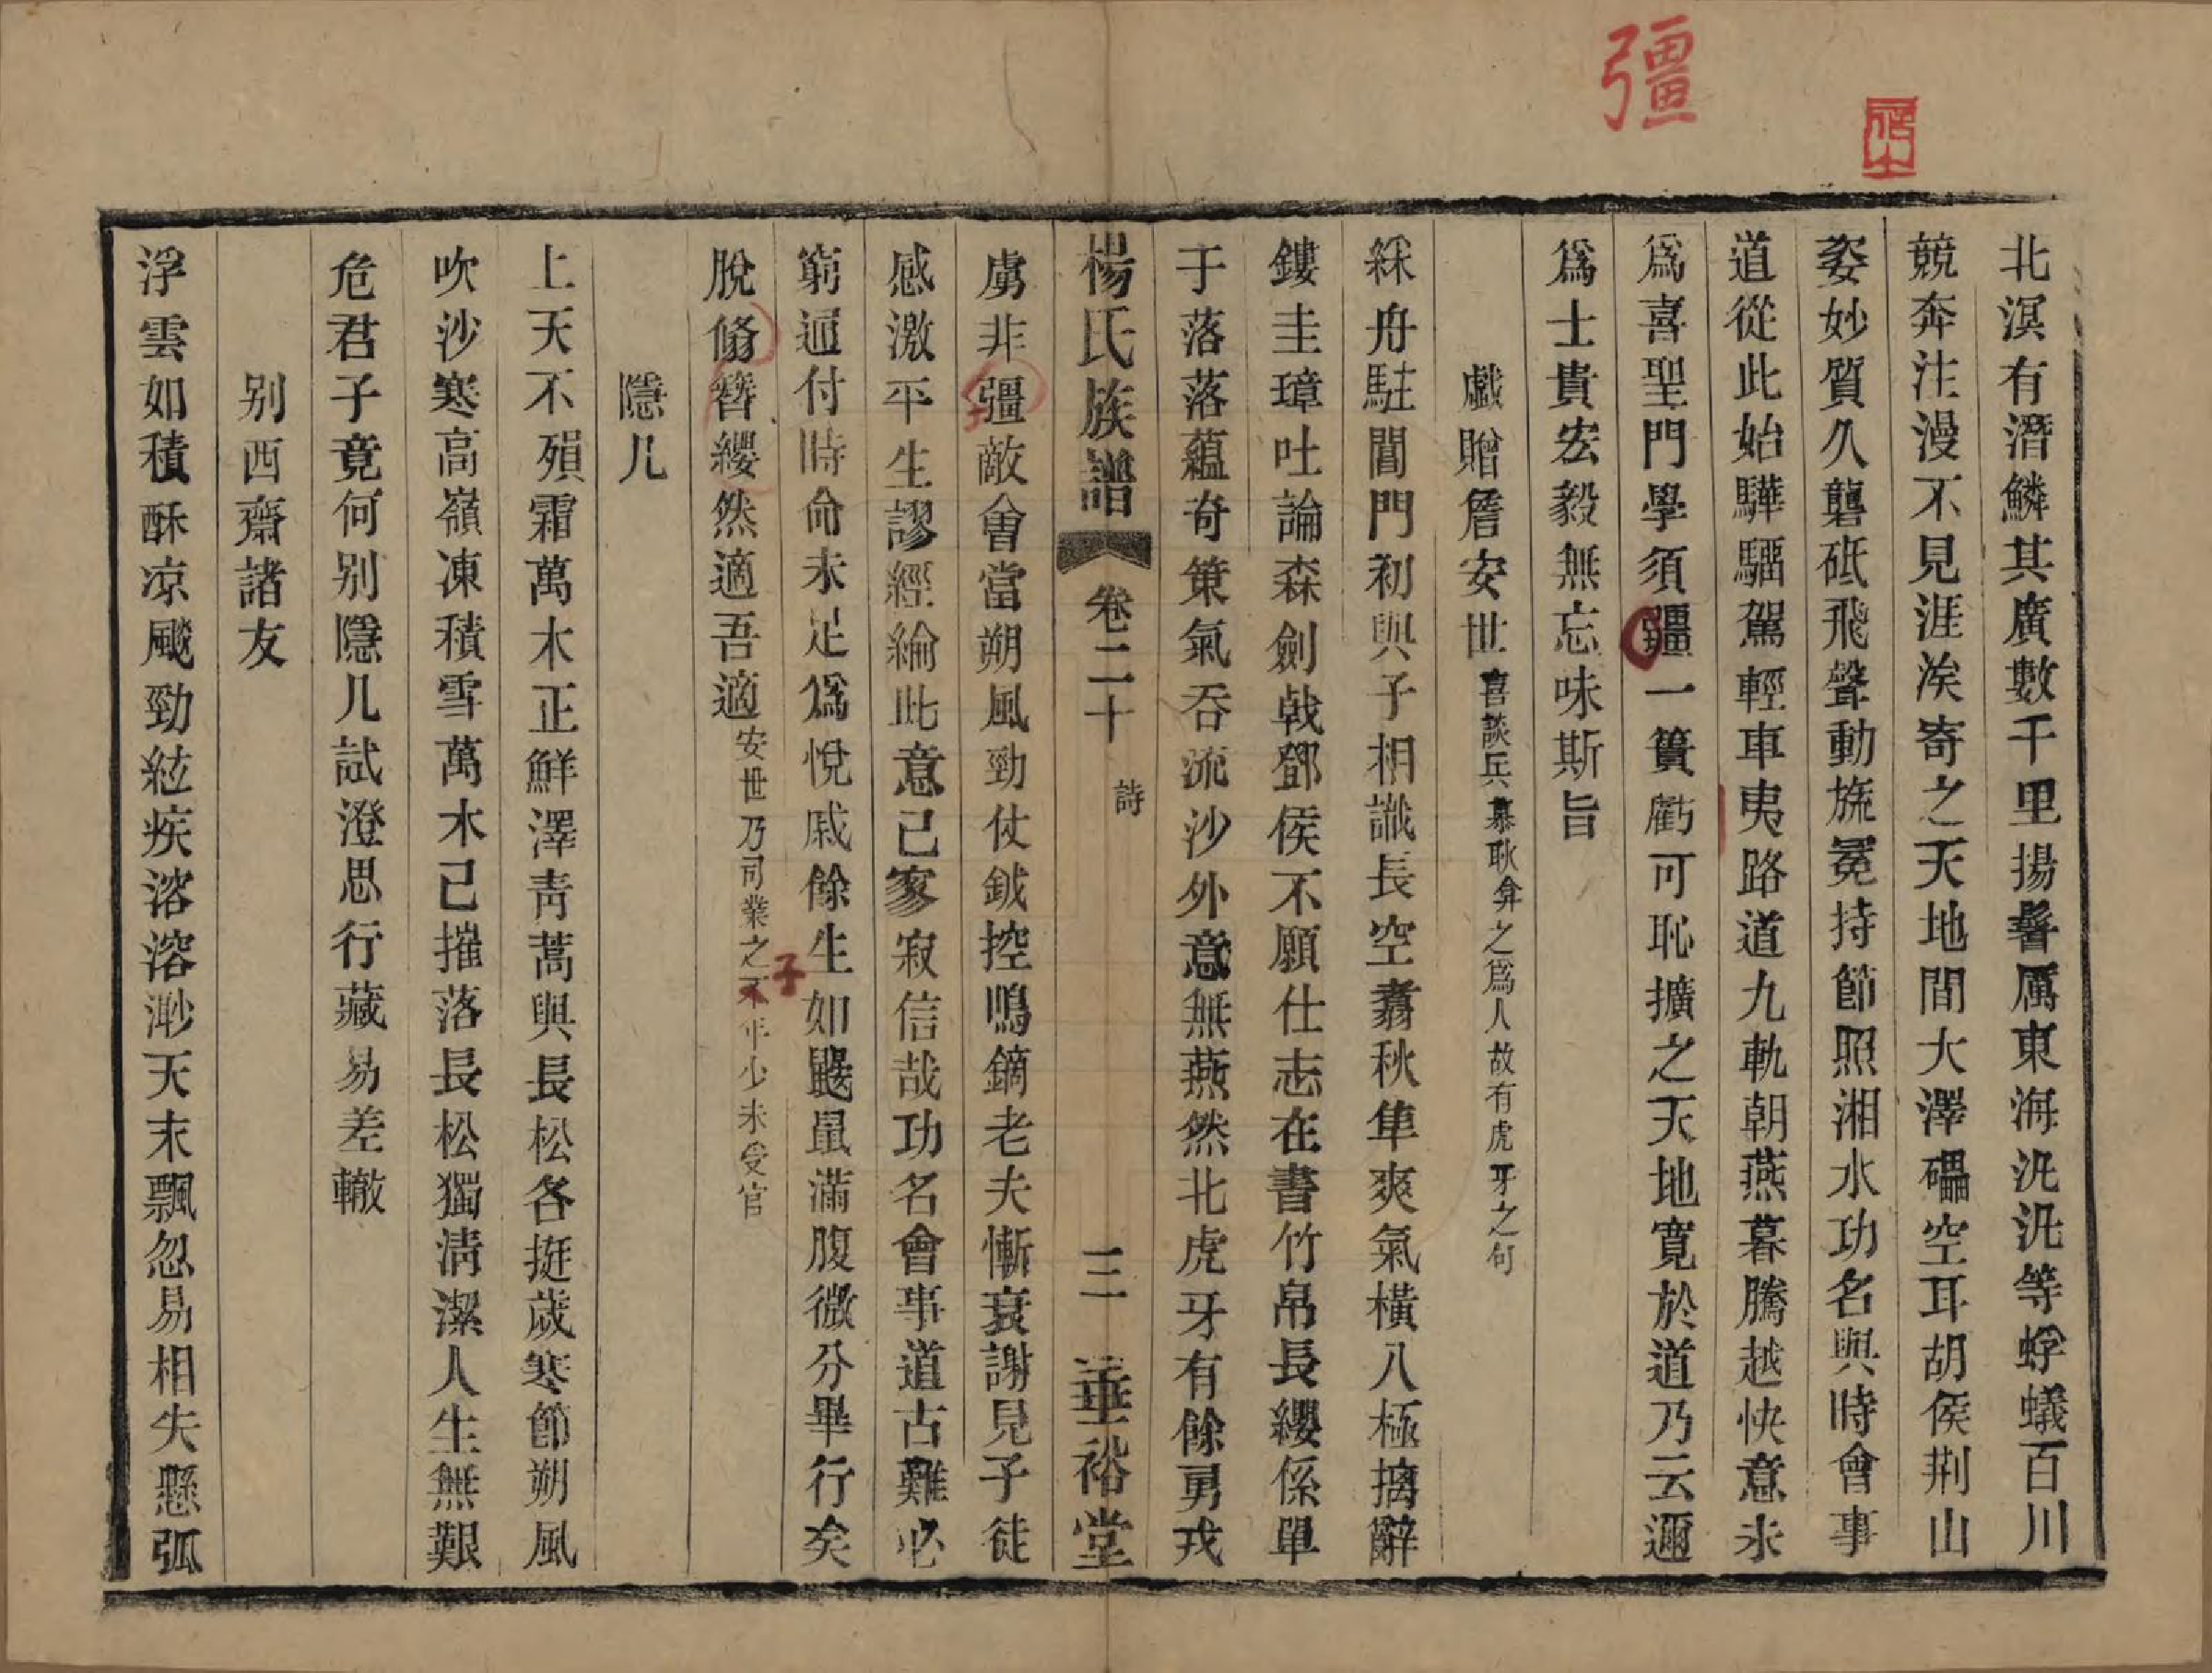 彊
北溟有潛鱗其廣數千里揚鬐厲東海汎汎等蜉蟻百川
競奔注漫不見涯涘寄之天地間大澤礧空耳胡侯荆山
姿妙質久礱砥飛聲動旒冕持節照湘水功名與時會事
道從此始驊騮駕輕車夷路道九軌朝燕暮騰越快意未
爲喜聖門學須彊一簣虧可恥擴之天地寛於道乃云邇
爲士貴宏毅無忘味斯旨
戲贈詹安世喜談兵慕耿弇之爲人故有虎牙之句
綵舟駐閶門初與子相識長空翥秋隼爽氣橫八極摛辭
鏤圭璋吐論森劍戟鄧侯不願仕志在書竹帛長纓係單
于落落蘊奇策氣吞流沙外意無燕然北虎牙有餘勇戎
楊氏族譜 卷二十 詩 三 華裕堂
虜非彊敵會當朔風勁仗鉞控鳴鏑老夫慚衰謝見子徒
感激平生謬經綸此意已寥寂信哉功名會事道古難必
窮通付時命未足爲悅戚餘生如鼴鼠滿腹微分畢行矣
脫脩簪纓然適吾適安世乃司業之不年少未受官
子
隱几
上天不殞霜萬木正鮮澤靑蒿與長松各挺歲寒節朔風
吹沙寒高嶺凍積雪萬木已摧落長松獨淸潔人生無艱
危君子竟何别隱几試澄思行藏易差轍
别西齋諸友
浮雲如積酥凉飈勁絃疾溶溶渺天末飄忽易相失懸弧